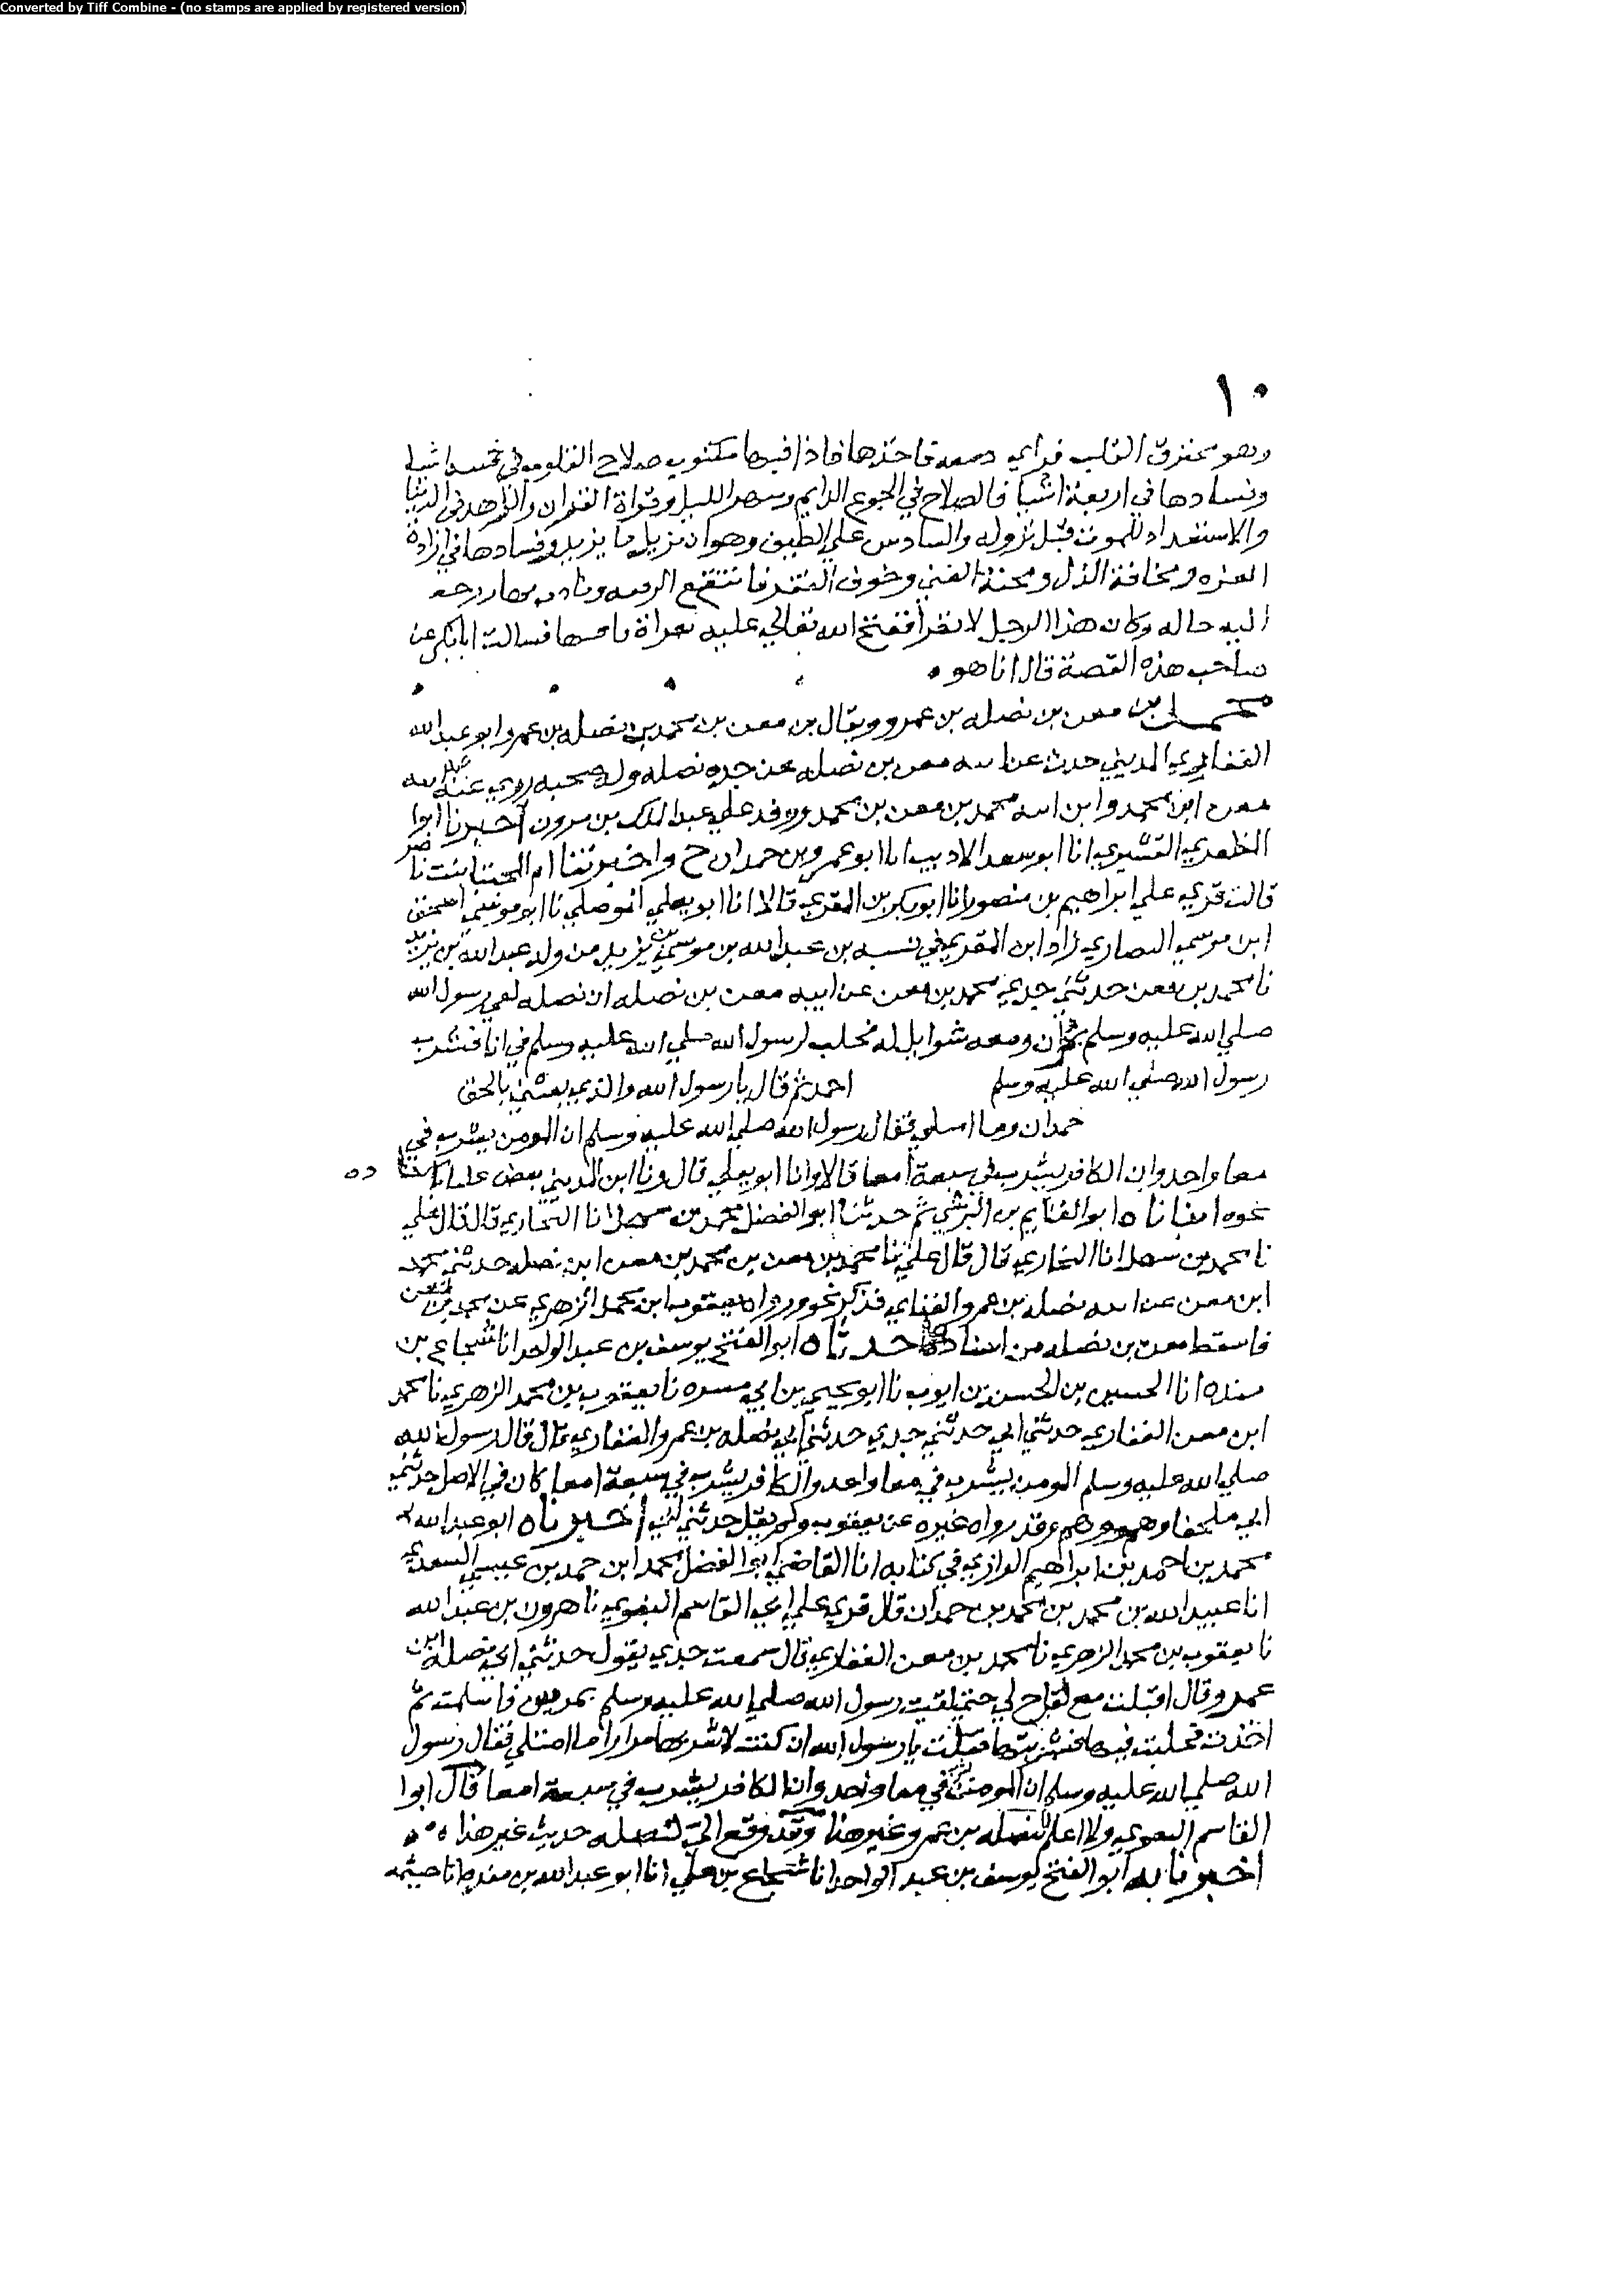 Converted by Tiff Combine - (no stamps are applied by registered version)
١٠
وهو محترق القلب فراي فاخذها فاذا فيها مكتوب صلاح القلوب في خمسه اشيا
وفسادها في اربعة اشيا فالصلاح في الجوع الدايم وسهر الليل وقراة القران والزهد في الدنيا
والاستعداد للموت قبل نزوله والسادس علي الطبق وهو ان يريد ما يريد وفسادها في ارادة
العزه ومخافة الذل ومحبة الغني وخوف الفقر فانتفع وصار رجع
اليه حاله وكان هذا الرجل لا يقرا ففتح الله تعالي عليه فسالت ابا بكر عن
صاحب هذه القصة قال انا هو
محمد بن معن بن نضله بن عمرو ويقال بن معن بن محمد بن نضله بن عمرو ابو عبد الله
الغفاري المديني حدث عن ابيه معن بن نضله عن جده نضله وله صحبه روي عنه عبد الله
معن ابن محمد وابن ابنه محمد بن معن بن محمد ووفد علي عبد الملك بن مرون اخبرنا ابوا
المظفر القشيري انا ابو سعد الاديب انا ابو عمرو بن حمدان ح واخبرتنا ام المجتبا بنت نا صر
قالت قري علي ابراهيم بن منصور انا ابو بكر بن المقري قالا انا ابو يعلي الموصلي نا ابو موسي اسحق
ابن موسي الانصاري زاد ابن المقري في نسبه بن عبد الله بن موسي بن يزيد من ولد عبد الله بن يزيد
نا محمد بن معن حدثني جدي محمد بن معن عن ابيه معن بن نضله ان نضله لقي رسول الله
صلي الله عليه وسلم بمران ومعه شوايل له فحلب لرسول الله صلي الله عليه وسلم في انا فشرب
رسول الله صلي الله عليه وسلم احمد ثم قال يا رسول الله والذي بعثني بالحق
حمدان وما امتلي فقال رسول الله صلي الله عليه وسلم ان المومن يشرب في
معا واحد وان الكافر يشرب في سبعة امعا قالا وانا ابو يعلي قال ونا ابن المديني بعض علمائنا
نحوه انبانا ه ابو الغنايم بن النرسي ثم حدثنا ابو الفضل محمد بن سهل انا البخاري قال قال علي
نا محمد بن سهل انا البخاري قال قال علي نا محمد بن معن بن محمد بن معن ابن نضله حدثني محمد
ابن معن عن ابيه نضله بن عمرو الغفاري فذكر نحوه ورواه يعقوب ابن محمد الزهري عن محمد بن معن
فاسقط معن بن نضله من اسناده حدثناه ابو الفتح يوسف بن عبد الواحد انا شجاع بن
منده انا الحسين بن الحسن بن ايوب نا ابو يحيي بن ابي مسره نا يعقوب بن محمد الزهري نا محمد
ابن معن الغفاري حدثني ابي حدثني جدي حدثني ابي نضله بن عمرو الغفاري قال قال رسول الله
صلي الله عليه وسلم المومن يشرب في معا واحد والكافر يشرب في سبعة امعا كان في الاصل حدثني
ابي ملحقا وهو وهم وقد رواه غيره عن يعقوب ولم يقل حدثني ابي اخبرناه ابو عبد الله
محمد بن احمد بن ابراهيم الرازي في كتابه انا القاضي ابو الفضل محمد ابن حمد بن عيسي السعدي
انا عبيد الله بن محمد بن محمد بن حمدان قال قري علي ابي القاسم البغوي نا هرون بن عبد الله
نا يعقوب بن محمد الزهري نا محمد بن معن الغفاري قال سمعت جدي يقول حدثني ابي نضله ابن
عمرو قال اقبلت مع لقاح لي حتي لقيت رسول الله صلي الله عليه وسلم بمريين فاسلمت ثم
اخذت فحلبت فيها فشربتها فقلت يا رسول الله ان كنت لاشربها مرارا ما امتلي فقال رسول
الله صلي الله عليه وسلم ان المومن يشرب في معا واحد وان الكافر يشرب في سبعة امعا قال ابوا
القاسم البغوي ولا اعلم لنضله بن عمرو غير هذا وقد وقع الي لنضله حديث غير هذا
اخبرنا به ابو الفتح يوسف بن عبد الواحد انا شجاع بن علي انا ابو عبد الله بن منده انا خيثمه